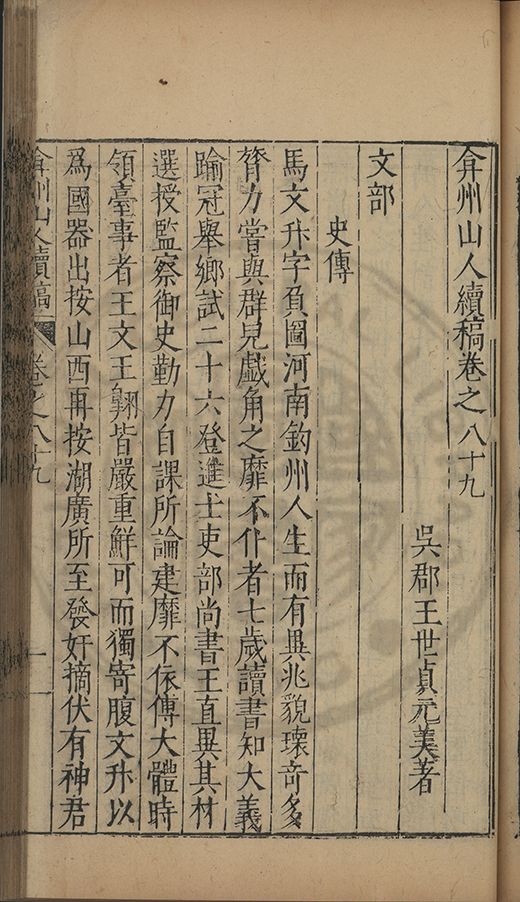 弇州山人續稿卷之八十九
吳郡王世貞元美著
文部
史傳
馬文升字負圖河南鈞州人生而有異兆貌瓌奇多
膂力嘗與群兒戲角之靡不仆者七歲讀書知大義
踰冠舉鄉試二十六登進士吏部尚書王直異其材
選授監察御史勤力自課所論建靡不依傅大體時
領臺事者王文王翺皆嚴重鮮可而獨寄腹文升以
為國器出按山西再按湖廣所至發奸摘伏有神君
弇州山人續稿 卷之八十九 一